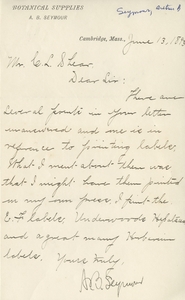 BOTANICAL SUPPLIES
A. B. SEYMOUR
Seymour, Arthur B
Cambridge, Mass., June 13, 18
Mr. C L Shear
Dear Sir:
There are
several points in your letter
unanswered and one is in
reference to printing labels.
What I meant about them was
that I might have them printed
in my own press I print the
labels. Underwoods Hepaticae
and a great many Herbarium
labels.
Yours truly,
A. B. Seymour